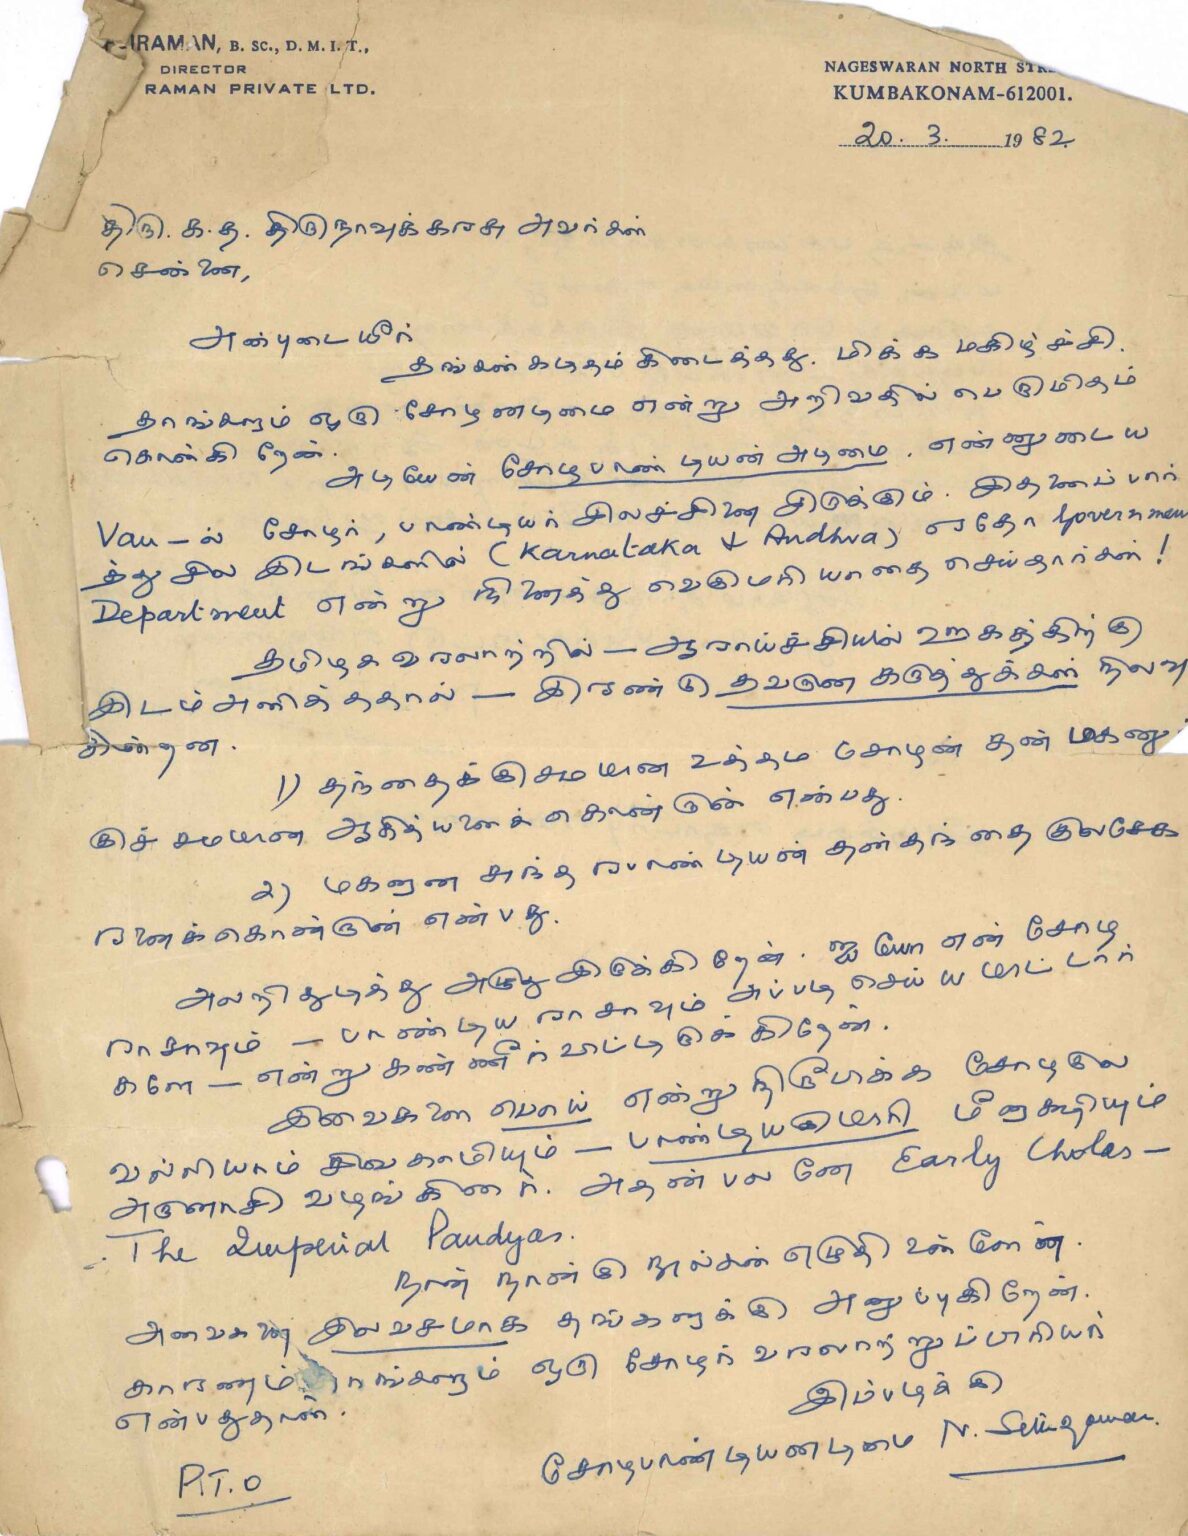 IRAMAN, B. SC., D. M. I. T.,
DIRECTOR
RAMAN PRIVATE LTD.
NAGESWARAN NORTH
KUMBAKONAM-612001.
20. 3. 1982
திரு. க. த. திருநாவுக்கரசு அவர்கள்
சென்னை,
அன்புடையீர்
தங்கள் கடிதம் கிடைத்தது. மிக்க மகிழ்ச்சி.
தாங்களும் ஒரு சோழனடிமை என்று அறிவதில் பெருமிதம்
கொள்கிறேன்.
அடியேன் சோழபாண்டியன் அடிமை. என்னுடைய
Van-ல் சோழர், பாண்டியர் இலச்சினை இருக்கும். இதனைப் பார்
த்து சில இடங்களில் (Karnataka & Andhra) ஏதோ Government
Department என்று நினைத்து வெகுமரியாதை செய்தார்கள்!
தமிழக வரலாற்றில் - ஆராய்ச்சியில் ஊகத்திற்கு
இடம் அளித்ததால் - இரண்டு தவறான கருத்துக்கள் நிலவு
கின்றன.
1) தந்தைக்குச்சமமான உத்தம சோழன் தன் மகனு
குச் சமமான ஆதித்யனைக் கொன்றான் என்பது.
2) மகனான சுந்தரபாண்டியன் தன் தந்தை குலசேக
ரனைக் கொன்றான் என்பது.
அலறிதுடித்து அழுதுஇருக்கிறேன். ஐயோ என் சோழ
ராசாவும் - பாண்டிய ராசாவும் அப்படி செய்யமாட்டார்
களே - என்று கண்ணீர் விட்டிருக்கிறேன்.
இவைகளை பொய் என்று நிரூபிக்க சோழகுல
வல்லியாம் சிவகாமியும் - பாண்டியகுமாரி மீனாக்ஷியும்
அருளாசி வழங்கினர். அதன் பலனே Early Cholas -
The Imperial Pandyas.
நான் நான்கு நூல்கள் எழுதி உள்ளேன்.
அவைகளை இலவசமாக தங்களுக்கு அனுப்புகிறேன்.
காரணம் தாங்களும் ஒரு சோழர் வரலாற்றுப்பிரியர்
என்பதுதான்.
இப்படிக்கு
சோழபாண்டியனடிமை N. Sethuraman.
P.T.O